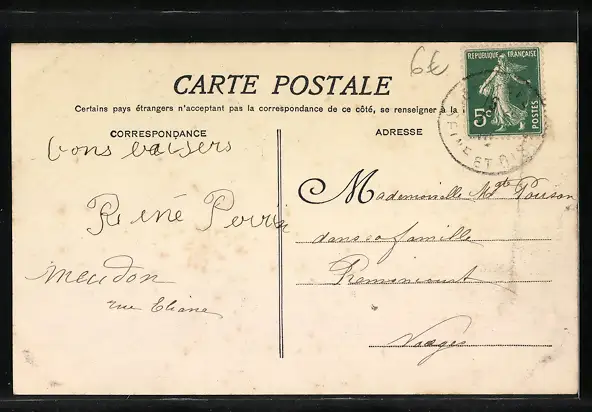 6€
RÉPUBLIQUE FRANÇAISE
5c
POSTES
SEINE ET OISE
CARTE POSTALE
Certains pays étrangers n'acceptant pas la correspondance de ce côté, se renseigner à la
CORRESPONDANCE
bons baisers
René Perrin
Meudon
rue Eliane
ADRESSE
Mademoiselle Mgte Poirson
dans sa famille
Remoncourt
Vosges